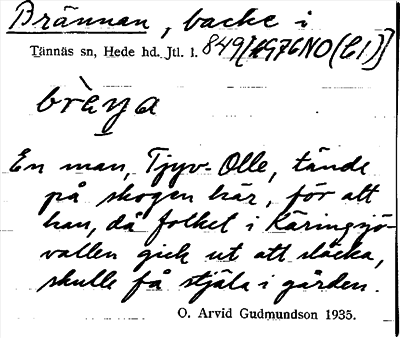 Brännan, backe i
Tännäs sn, Hede hd. Jtl. l. 849[1976NO(C1)]
En man, Tjyv-Olle, tände
på skogen här, för att
han, då folket i Käringsjö-
vallen gick ut att släcka,
skulle få stjäla i gården.
O. Arvid Gudmundson 1935.